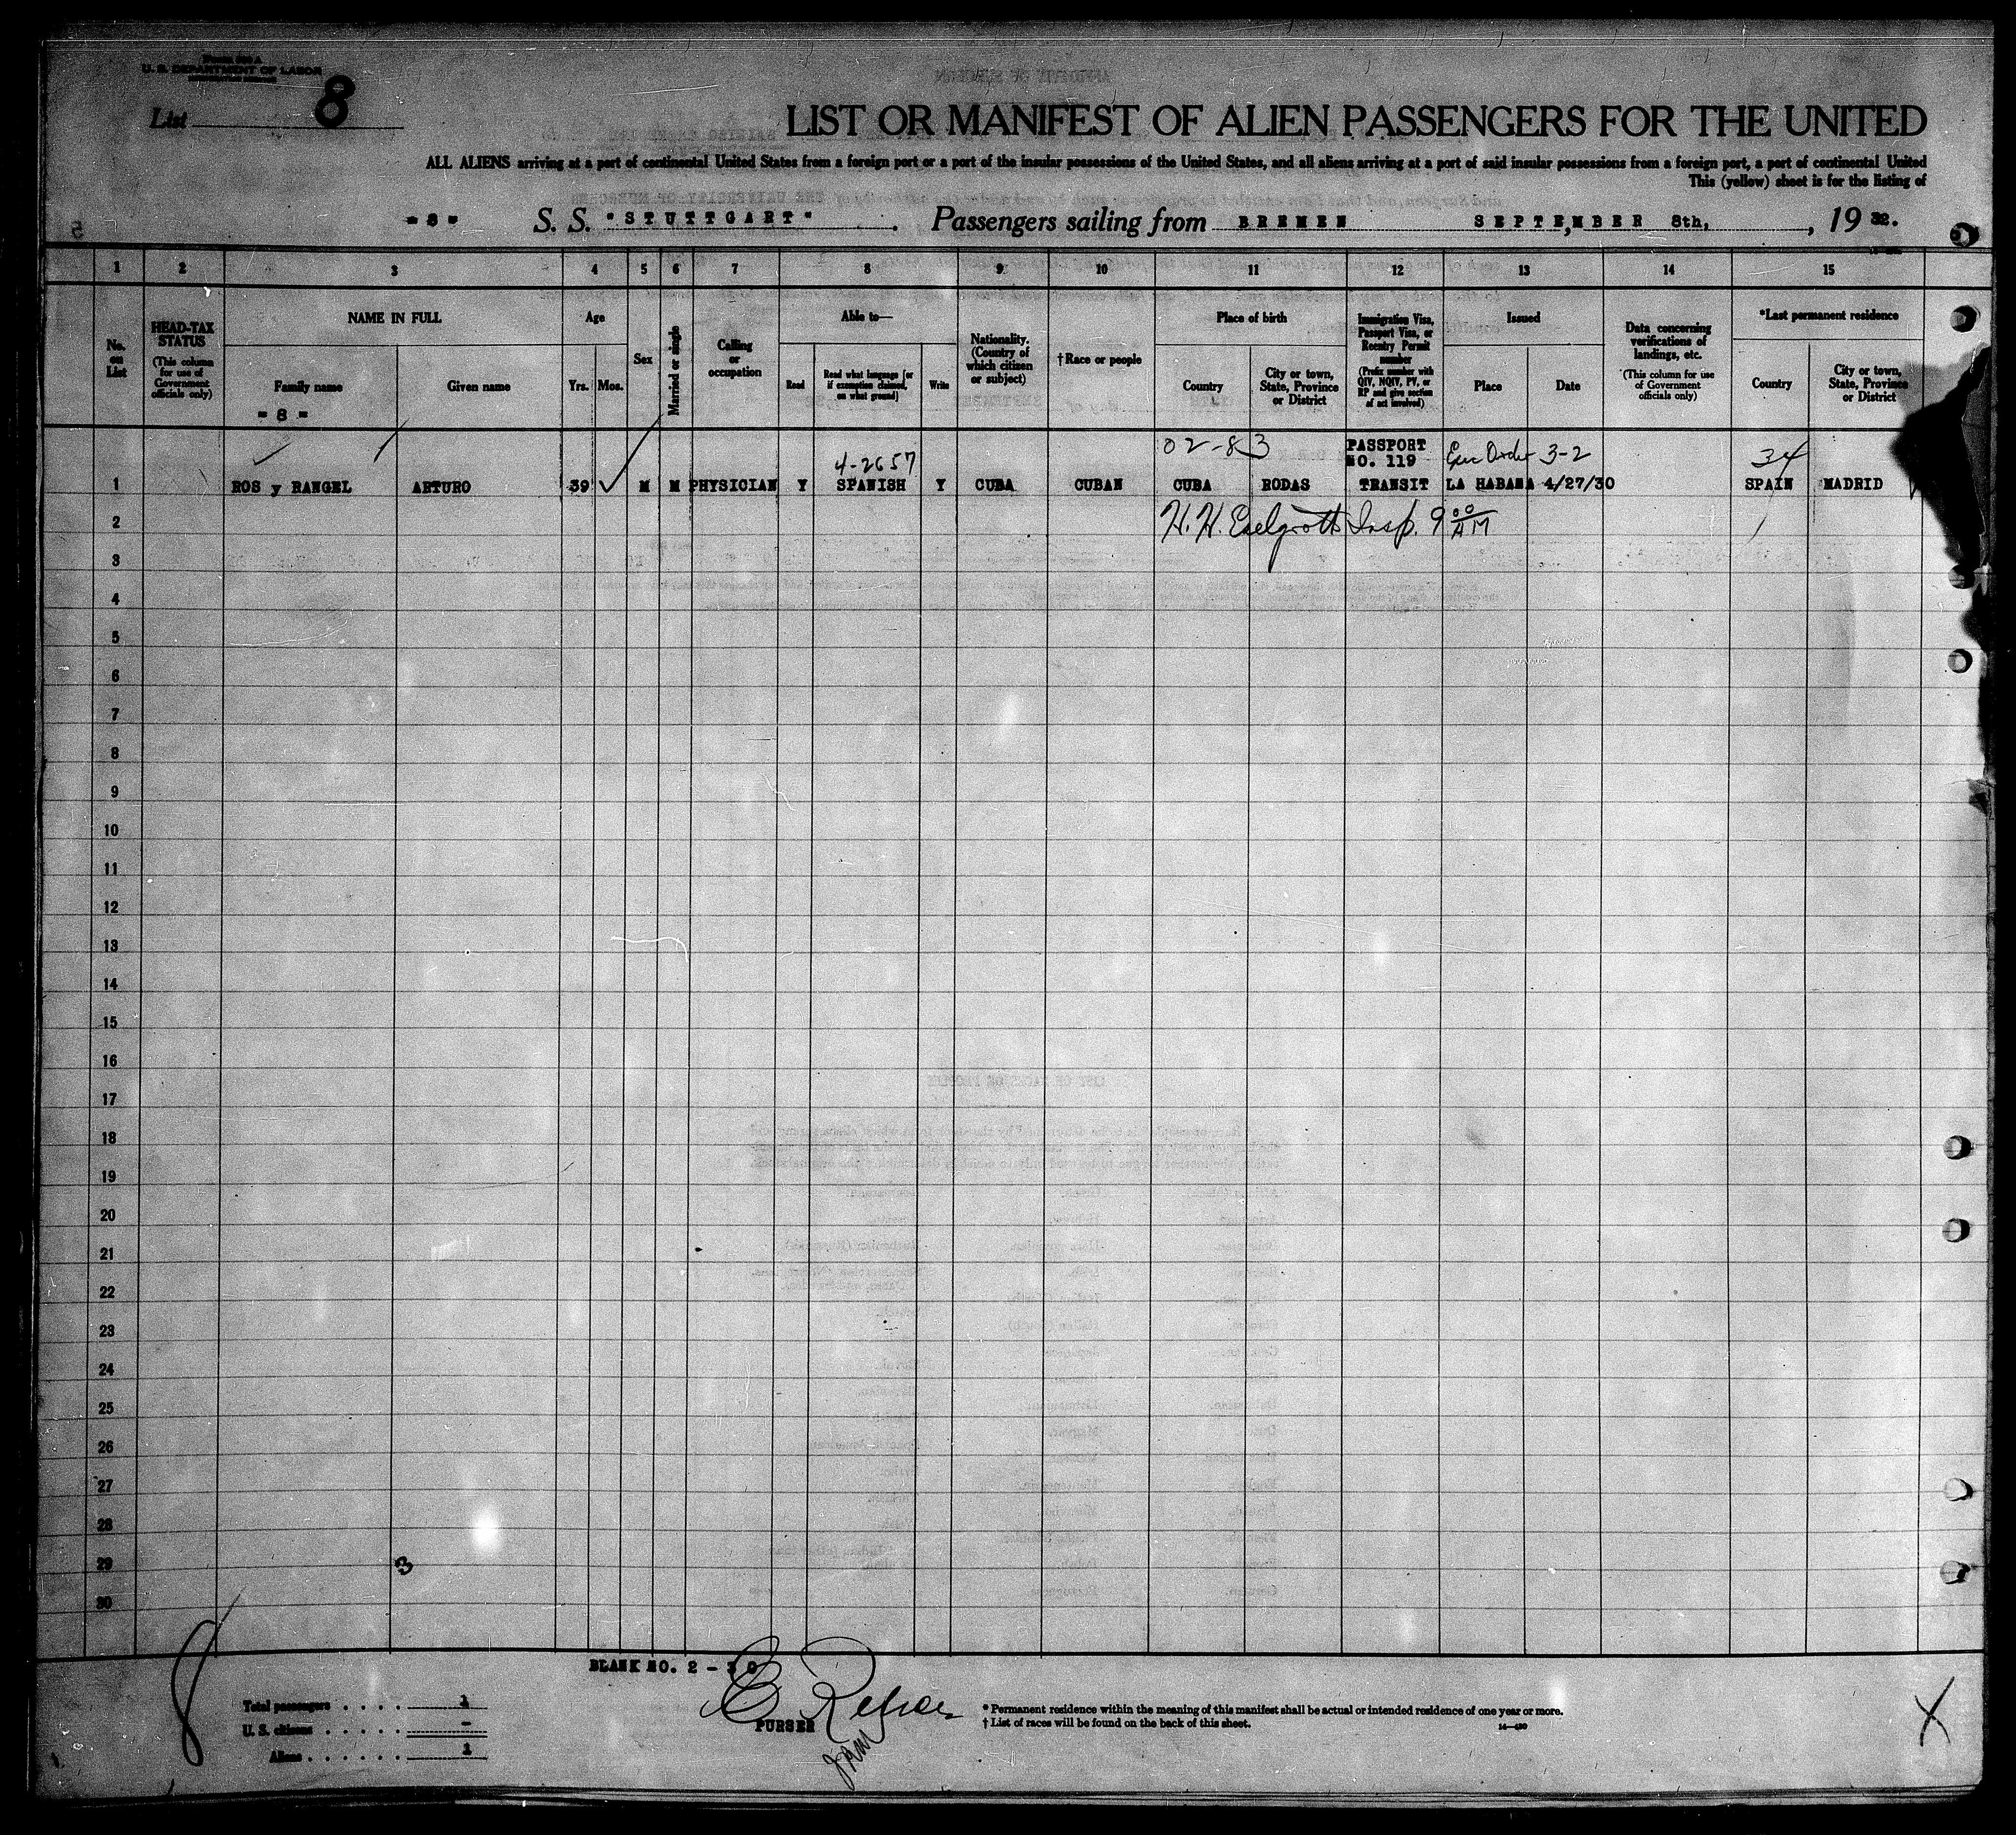 U. S. DEPARTMENT OF LABOR
List 8
LIST OR MANIFEST OF ALIEN PASSENGERS FOR THE UNITED
ALL ALIENS arriving at a port of continental United States from a foreign port or a port of the insular possessions of the United States, and all aliens arriving at a port of said insular possessions from a foreign port, a port of continental United
This (yellow) sheet is for the listing of
- 8 - S. S. "STUTTGART". Passengers sailing from BREMEN SEPTEMBER 8th, , 19 32.
1 2 3 4 5 6 7 8 9 10 11 12 13 14 15
No. on List
HEAD-TAX STATUS
(This column for use of Government officials only)
NAME IN FULL
Family name
- 8 -
Given name
Age
Yrs. Mos.
Sex
Married or single
Calling or occupation
Able to—
Read
Read what language [or if exemption claimed, on what ground]
Write
Nationality. (Country of which citizen or subject)
† Race or people
Place of birth
Country
City or town, State, Province or District
Immigration Visa, Passport Visa, or Reentry Permit number
(Prefix number with QIV, NQIV, PV, or RP and give section of act involved)
Issued
Place
Date
Data concerning verifications of landings, etc.
(This column for use of Government officials only)
*Last permanent residence
Country
City or town, State, Province or District
02-83 PASSPORT
4-2657 NO. 119 Exec Order 3-2 34
1 ROS y RANGEL ARTURO 39 M M PHYSICIAN Y SPANISH Y CUBA CUBAN CUBA RODAS TRANSIT LA HABANA 4/27/30 SPAIN MADRID
2 H. H. Insp. 9 00 AM
3
4
5
6
7
8
9
10
11
12
13
14
15
16
17
18
19
20
21
22
23
24
25
26
27
28
29
30
BLANK NO. 2 - 30
Total passengers . . . . 1
U. S. citizens . . . . . -
Aliens . . . . . . 1
PURSER
* Permanent residence within the meaning of this manifest shall be actual or intended residence of one year or more.
† List of races will be found on the back of this sheet.
8
X